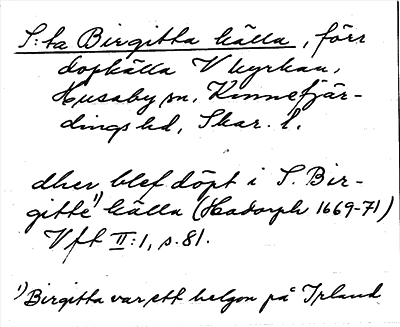 S:ta Birgitta källa, förr
dopkälla V kyrkan,
Husaby sn, Kinnefjär-
dings hd, Skar. l.
dher blef döpt i S. Bir-
gitte¹) källa (Hadorph 1669-71)
Vft II:1, s. 81.
¹) Birgitta var ett helgon på Irland